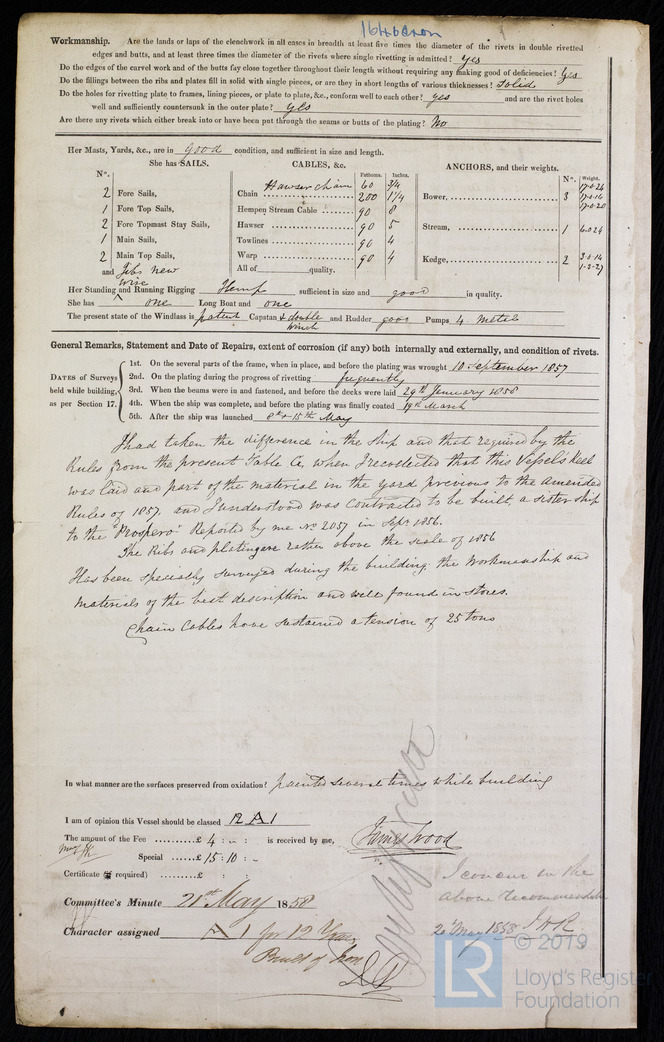 16466 Iron
Workmanship. Are the lands or laps of the clenchwork in all cases in breadth at least five times the diameter of the rivets in double rivetted
edges and butts, and at least three times the diameter of the rivets where single rivetting is admitted? Yes
Do the edges of the carvel work and of the butts fay close together throughout their length without requiring any making good of deficiencies? Yes
Do the fillings between the ribs and plates fill in solid with single pieces, or are they in short lengths of various thicknesses? Solid
Do the holes for rivetting plate to frames, lining pieces, or plate to plate, &c., conform well to each other? Yes and are the rivet holes
well and sufficiently countersunk in the outer plate? Yes
Are there any rivets which either break into or have been put through the seams or butts of the plating? No
Her Masts, Yards, &c., are in good condition, and sufficient in size and length.
She has SAILS. CABLES, &c. ANCHORS, and their weights.
No. Fathoms. Inches. No. Weight.
Hawser chain 60 3/4
2 Fore Sails, Chain 200 1 1/4 Bower, 3 17.0.24 17.0.16 17.0.20
1 Fore Top Sails, Hempen Stream Cable 90 8
2 Fore Topmast Stay Sails, Hawser 90 5 Stream, 1 6.0.26
1 Main Sails, Towlines 90 4
2 Main Top Sails, Warp 90 4 Kedge, 2 3.0.14 1.3.27
and Jibs new All of quality.
Her Standing wire and Running Rigging Hemp sufficient in size and good in quality.
She has one Long Boat and one
The present state of the Windlass is patent Capstan & double winch and Rudder good Pumps 4 metal
General Remarks, Statement and Date of Repairs, extent of corrosion (if any) both internally and externally, and condition of rivets.
DATES of Surveys held while building, as per Section 17.
1st. On the several parts of the frame, when in place, and before the plating was wrought 10 September 1857
2nd. On the plating during the progress of rivetting frequently
3rd. When the beams were in and fastened, and before the decks were laid 29th January 1858
4th. When the ship was complete, and before the plating was finally coated 19th March
5th. After the ship was launched 8th & 15th May
I had taken the difference in the ship and that required by the
Rules from the present Table C, when I recollected that this Vessel's Keel
was laid and part of the material in the yard previous to the amended
Rules of 1857. and I understood was Contracted to be built, a sister ship
to the "Prospero" Reported by me No. 2057 in Sepr 1856.
The Ribs and plating are rather above the scale of 1856
Has been Specially Surveyed during the building. the Workmanship and
Materials of the best description and well found in stores.
Chain Cables have sustained a tension of 25 tons
In what manner are the surfaces preserved from oxidation? painted several times while building
I am of opinion this Vessel should be classed 12 A 1
The amount of the Fee £ 4 : - : is received by me, James Wood
Special £ 15 : 10 : -
Certificate (if required) £ :
I concur in the
above recommendation
20 May 1858 J H R
Committee's Minute 21st May 1858
Character assigned A 1 for 12 Years
Built of Iron
LR © 2019
Lloyd's Register
Foundation